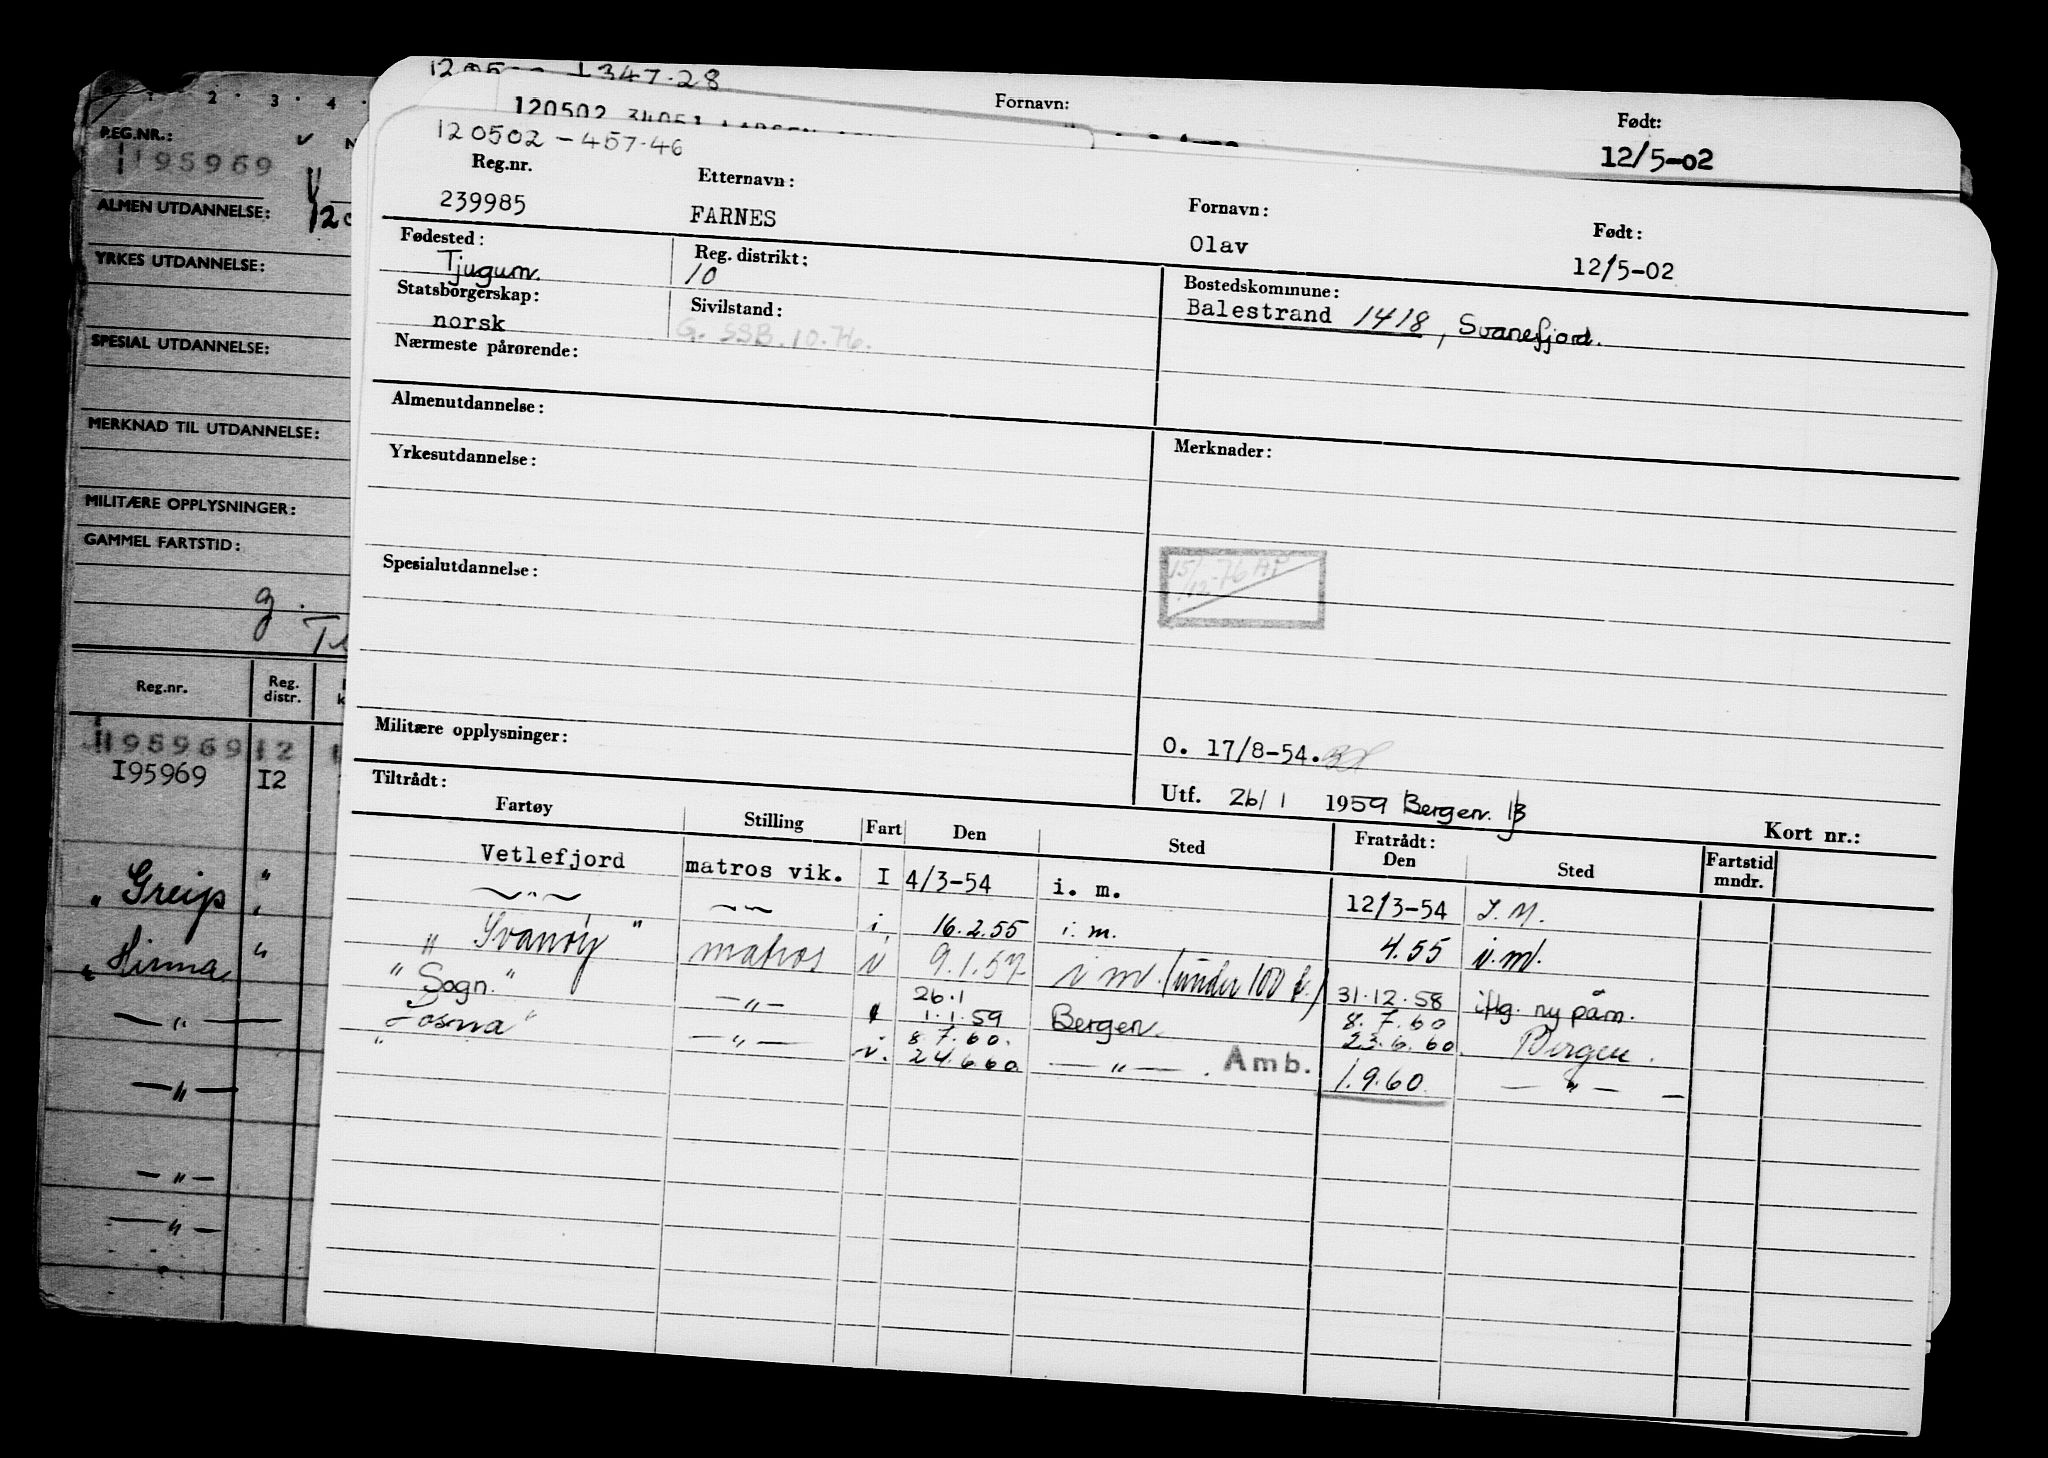 120502 - 457.46
Reg.nr.
239985
Etternavn:
FARNES
Fornavn:
Olav
Født:
12/5-02
Fødested:
Tjugum.
Reg. distrikt:
10
Bostedskommune:
Balestrand 1418, Svanefjord.
Statsborgerskap:
norsk
Sivilstand:
G. SSB. 10.76.
Nærmeste pårørende:
Almenutdannelse:
Yrkesutdannelse:
Merknader:
Spesialutdannelse:
15/12-76 AP
Militære opplysninger:
O. 17/8-54.
Utf. 26/1 1959 Bergen.
Kort nr.:
Tiltrådt:
Fartøy Stilling Fart Den Sted Fratrådt: Den Sted Fartstid mndr.
Vetlefjord matros vik. I 4/3-54 i. m. 12/3-54 I.M.
—"— —"— i 16.2.55 i. m. 4.55 i.m.
" Svanøy " matros i 9.1.57 i m. (under 100 t.) 31.12.58 iflg. ny påm.
26.1
" Sogn." —"— 1.1.59 Bergen. 8.7.60
23.6.60. Bergen.
8.7.60.
" Losna " —"— i. 24.6.60 —"—. Amb. 1.9.60. —"— —
347.28
120502 34051
Fornavn:
Født:
12/5-02
1 2 3 4
REG.NR.:
195969
ALMEN UTDANNELSE:
YRKES UTDANNELSE:
SPESIAL UTDANNELSE:
MERKNAD TIL UTDANNELSE:
MILITÆRE OPPLYSNINGER:
GAMMEL FARTSTID:
g.
Reg.nr. Reg. distr.
195969 12
I95969 I2
" Greip "
" Hinna "
—"—
—"—
—"—
—"—